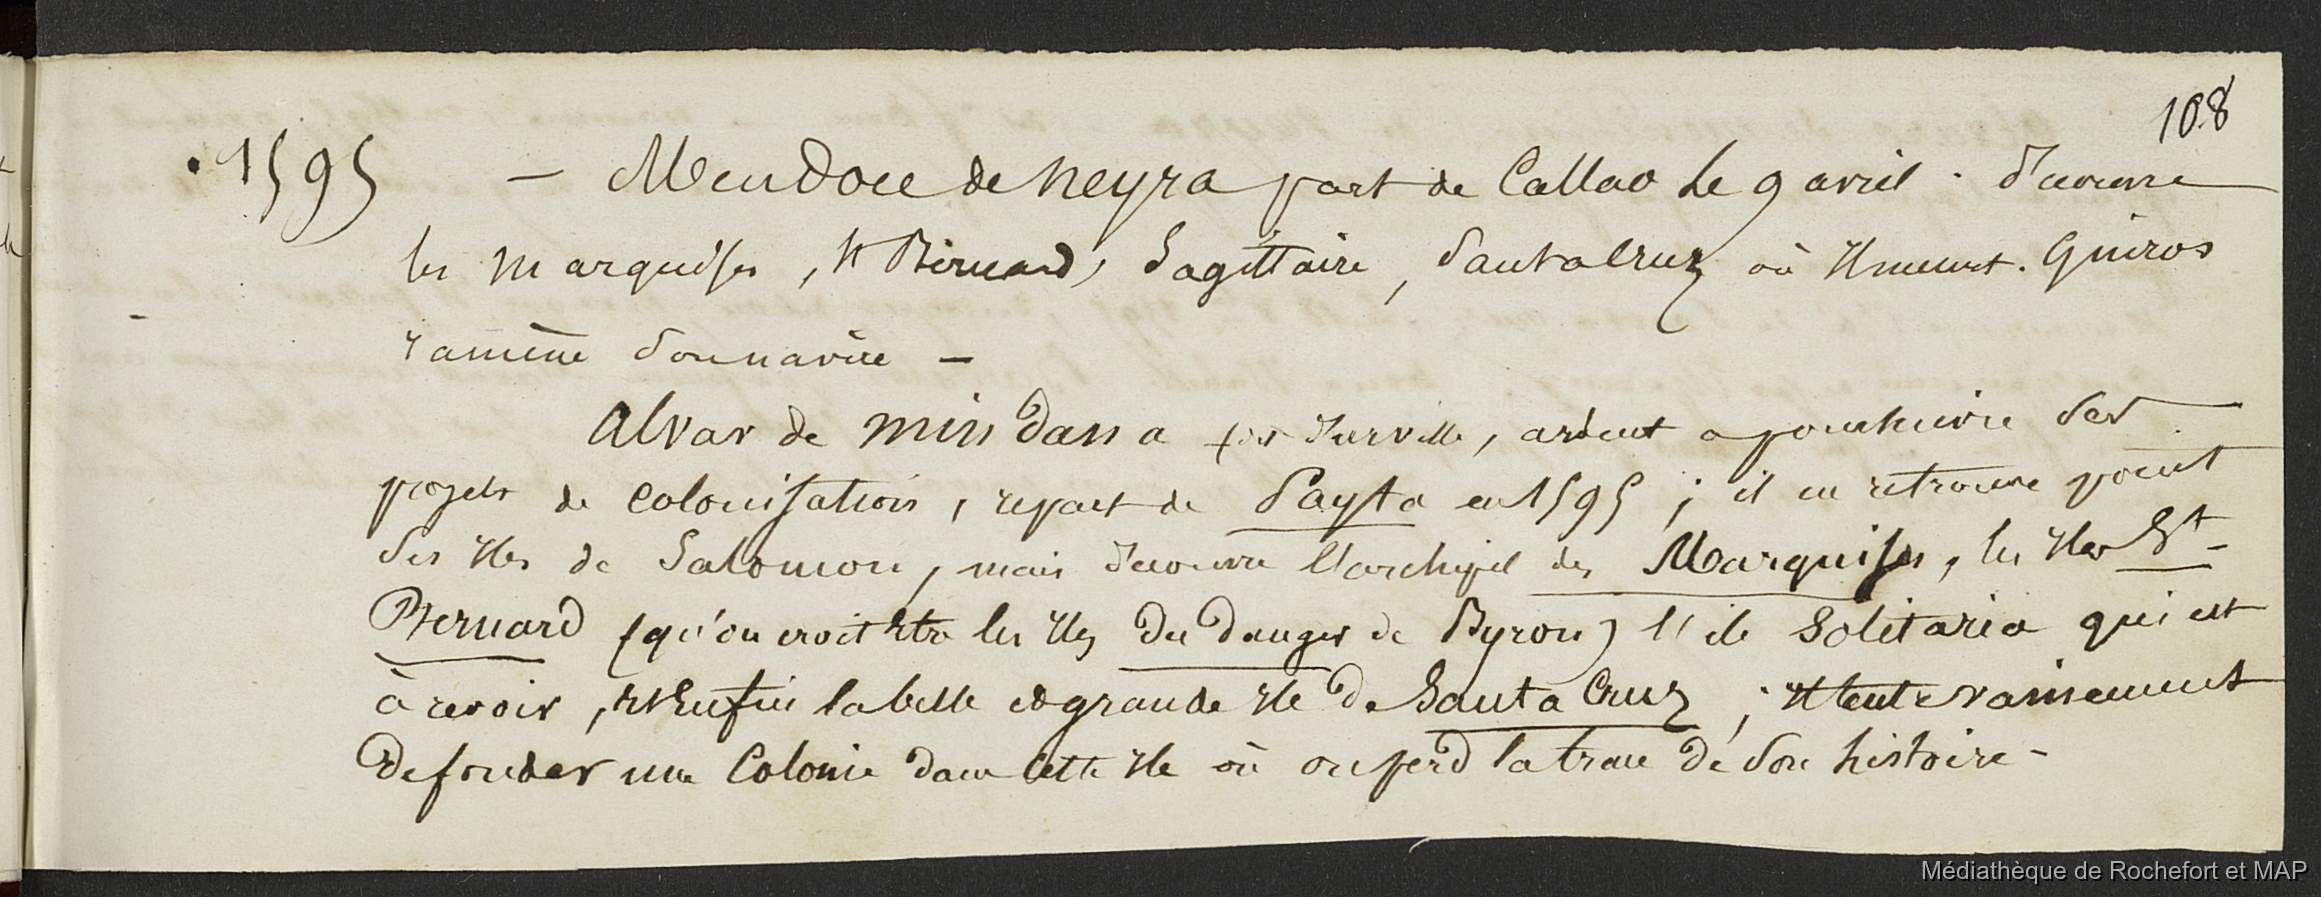 108
1595 — Mendoce de neyra part de Callao le 9 avril . Découvre
les marquises, St Bernard, Sagittaire, Santa Cruz où il meurt. Quiros
ramène son navire —
Alvar de mindana d'urville, ardent a poursuivre ses
projets de colonisation, repart de Payta en 1595 ; il en retrouve point
les iles de Salomon, mais découvre l'archipel des Marquises, les iles St
Bernard (qu'on croit etre les iles du danger de Byron) l'ile Solitaria qui est
à revoir, et enfin la belle et grande ile de Santa Cruz ; il tente vainement
de fonder une Colonie dans cette ile où on perd la trace de son histoire —
Médiathèque de Rochefort et MAP